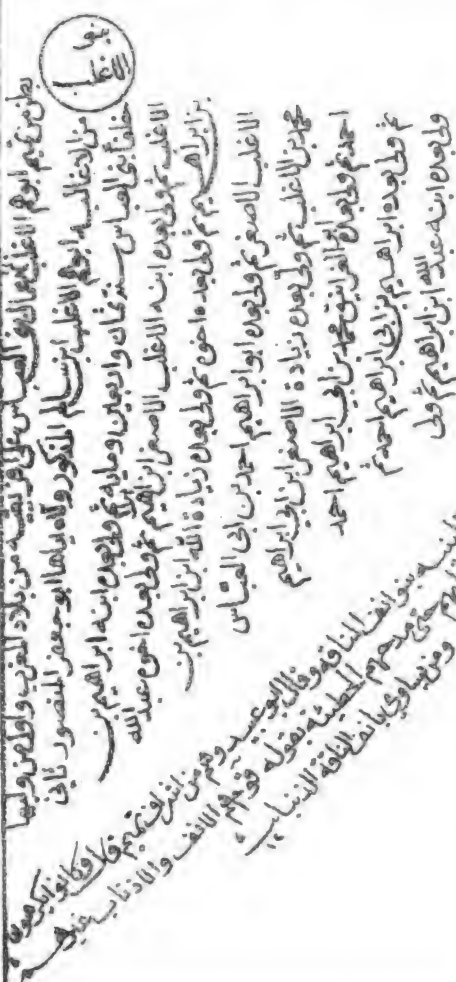 بنوا
الاغلب
بطن من تميم ابوهم الاغلب عمال بني العباس على افريقيه من بلاد المغرب واول من وليها
من الاغالبه ابوهم الاغلب ابن سالم المذكور ولاه اياها ابو جعفر المنصور ثاني
خلفا بني العباس سنة ثمان واربعين ومايه ثم ولي بعده ابنه ابراهيم بن
الاغلب ثم ولي بعده ابنه الاغلب الاصغر ابن ابراهيم ثم ولي بعده اخوه عبد الله
بن ابراهيم ثم ولي بعده اخوه ثم ولي بعده زيادة الله ابن ابراهيم بن
الاغلب الاصغر ثم ولي بعده ابو ابراهيم احمد بن ابي العباس
محمد بن الاغلب ثم ولي بعده زيادة الاصغر ابن ابي ابراهيم
احمد ثم ولي بعده ابو الغرانيق محمد بن ابي ابراهيم احمد
ثم ولي بعده ابراهيم بن ابي ابراهيم احمد ثم
ولي بعده ابنه عبد الله ابن ابراهيم ثم ولي
بنو انف الناقه وقال ابو عبيد وهم من اشراف تميم قال وكانوا يكرهون
حتى مدحهم الحطيئه بقوله قوم هم الانف والاذناب غيرهم
ومن يساوي بانف الناقة الذنبا